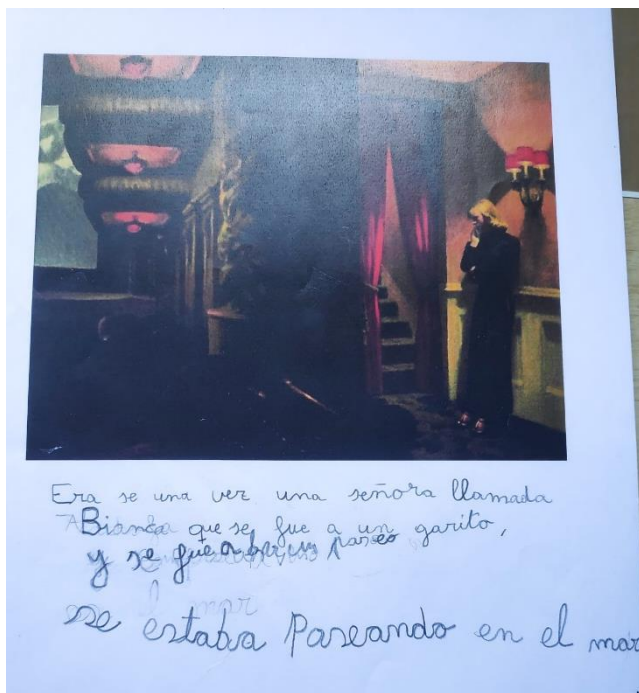 Era se una vez una señora llamada
Bianca que se fue a un garito,
y se fue a un paseo
se estaba Paseando en el mar